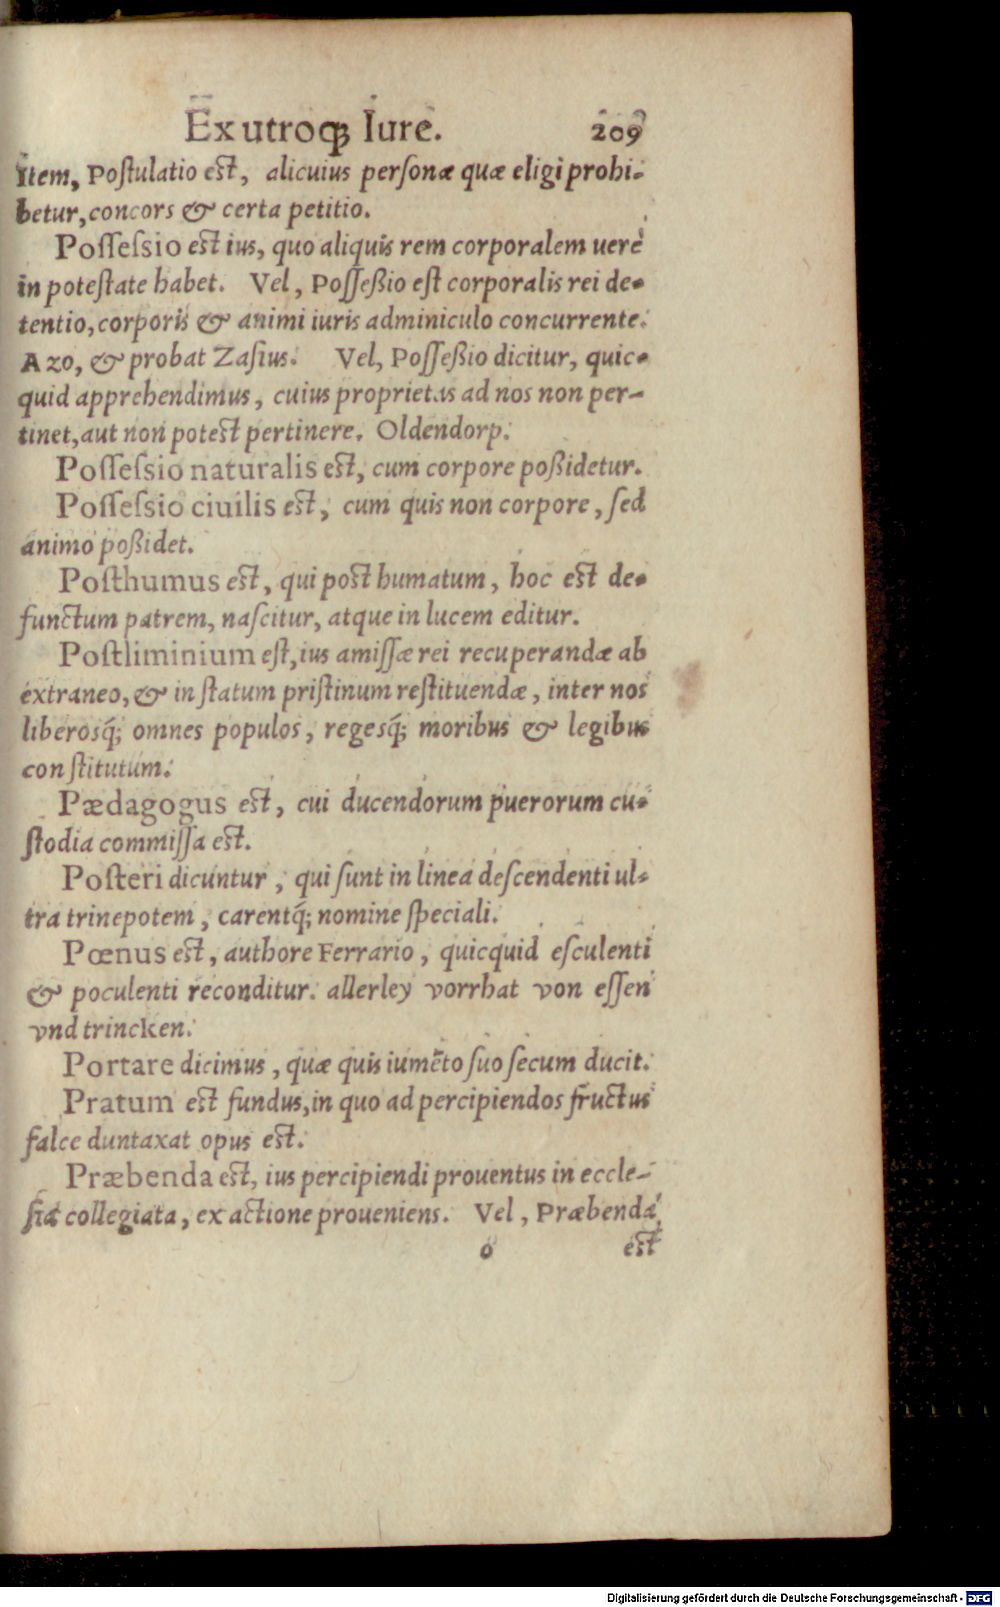 Ex utroq; Iure. 209
Item, Postulatio est, alicuius personæ quæ eligi prohi-
betur, concors & certa petitio.
Possessio est ius, quo aliquis rem corporalem uerè
in potestate habet. Vel, Possessio est corporalis rei de-
tentio, corporis & animi iuris adminiculo concurrente.
Azo, & probat Zasius. Vel, Possessio dicitur, quic-
quid apprehendimus, cuius proprietas ad nos non per-
tinet, aut non potest pertinere. Oldendorp.
Possessio naturalis est, cum corpore poßidetur.
Possessio ciuilis est, cum quis non corpore, sed
animo poßidet.
Posthumus est, qui post humatum, hoc est de-
functum patrem, nascitur, atque in lucem editur.
Postliminium est, ius amissæ rei recuperandæ ab
extraneo, & in statum pristinum restituendæ, inter nos
liberosq́; omnes populos, regesq́; moribus & legibus
constitutum.
Pædagogus est, cui ducendorum puerorum cu-
stodia commissa est.
Posteri dicuntur, qui sunt in linea descendenti ul-
tra trinepotem, carentq́; nomine speciali.
Pœnus est, authore Ferrario, quicquid esculenti
& poculenti reconditur. allerley vorrhat von essen
vnd trincken.
Portare dicimus, quæ quis iumẽto suo secum ducit.
Pratum est fundus, in quo ad percipiendos fructus
falce duntaxat opus est.
Præbenda est, ius percipiendi prouentus in eccle-
sia collegiata, ex actione proueniens. Vel, Præbenda
o est
Digitalisierung gefördert durch die Deutsche Forschungsgemeinschaft - DFG